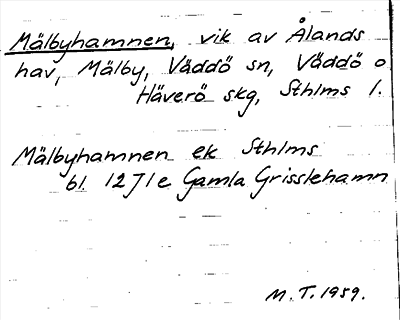 Mälbyhamnen, vik av Ålands
hav, Mälby, Väddö sn, Väddö o
Häverö skg, Sthlms l.
Mälbyhamnen ek Sthlms
bl. 12 71 e Gamla Grisslehamn
M.T. 1959.